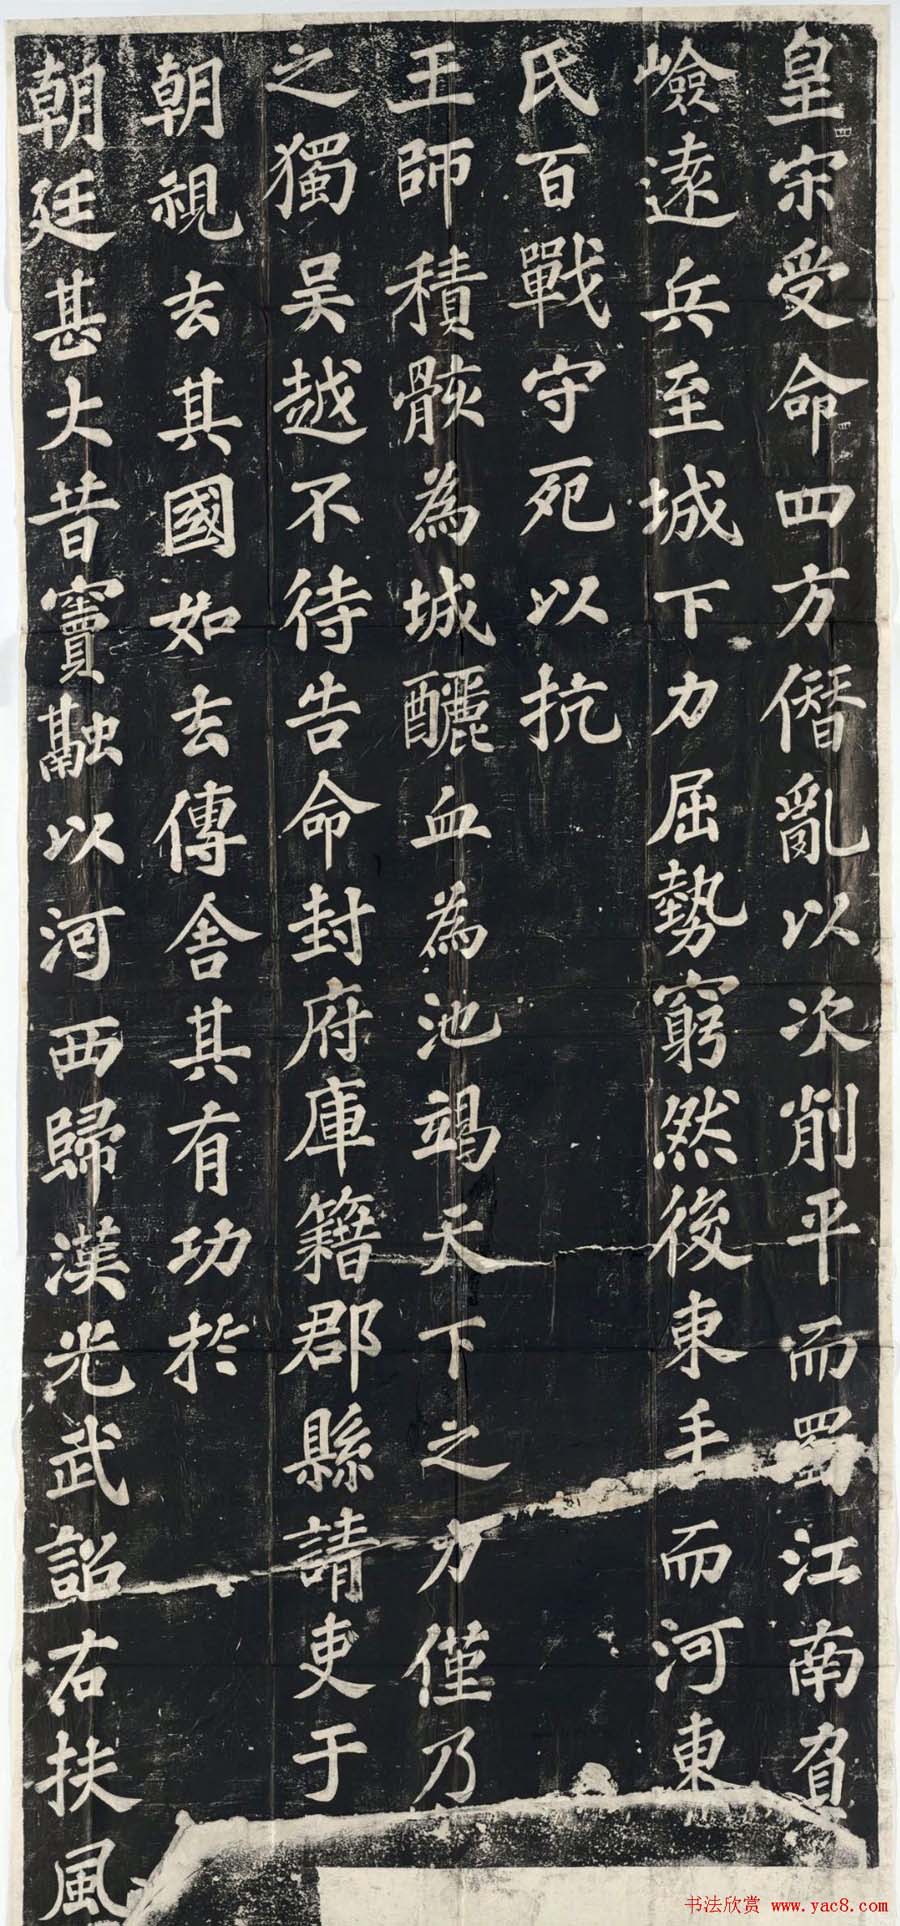 皇宋受命四方僭亂以次削平而蜀江南負
嶮遠兵至城下力屈勢窮然後束手而河東
氏百戰守死以抗
王師積骸為城釃血為池竭天下之力僅乃
之獨吳越不待告命封府庫籍郡縣請吏于
朝視去其國如去傳舍其有功於
朝廷甚大昔竇融以河西歸漢光武詔右扶風
书法欣赏 www.yac8.com